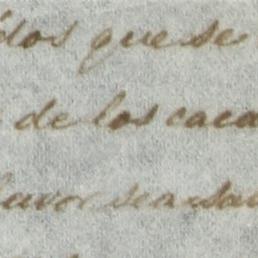 idos que se
de los caca
favor sea sa